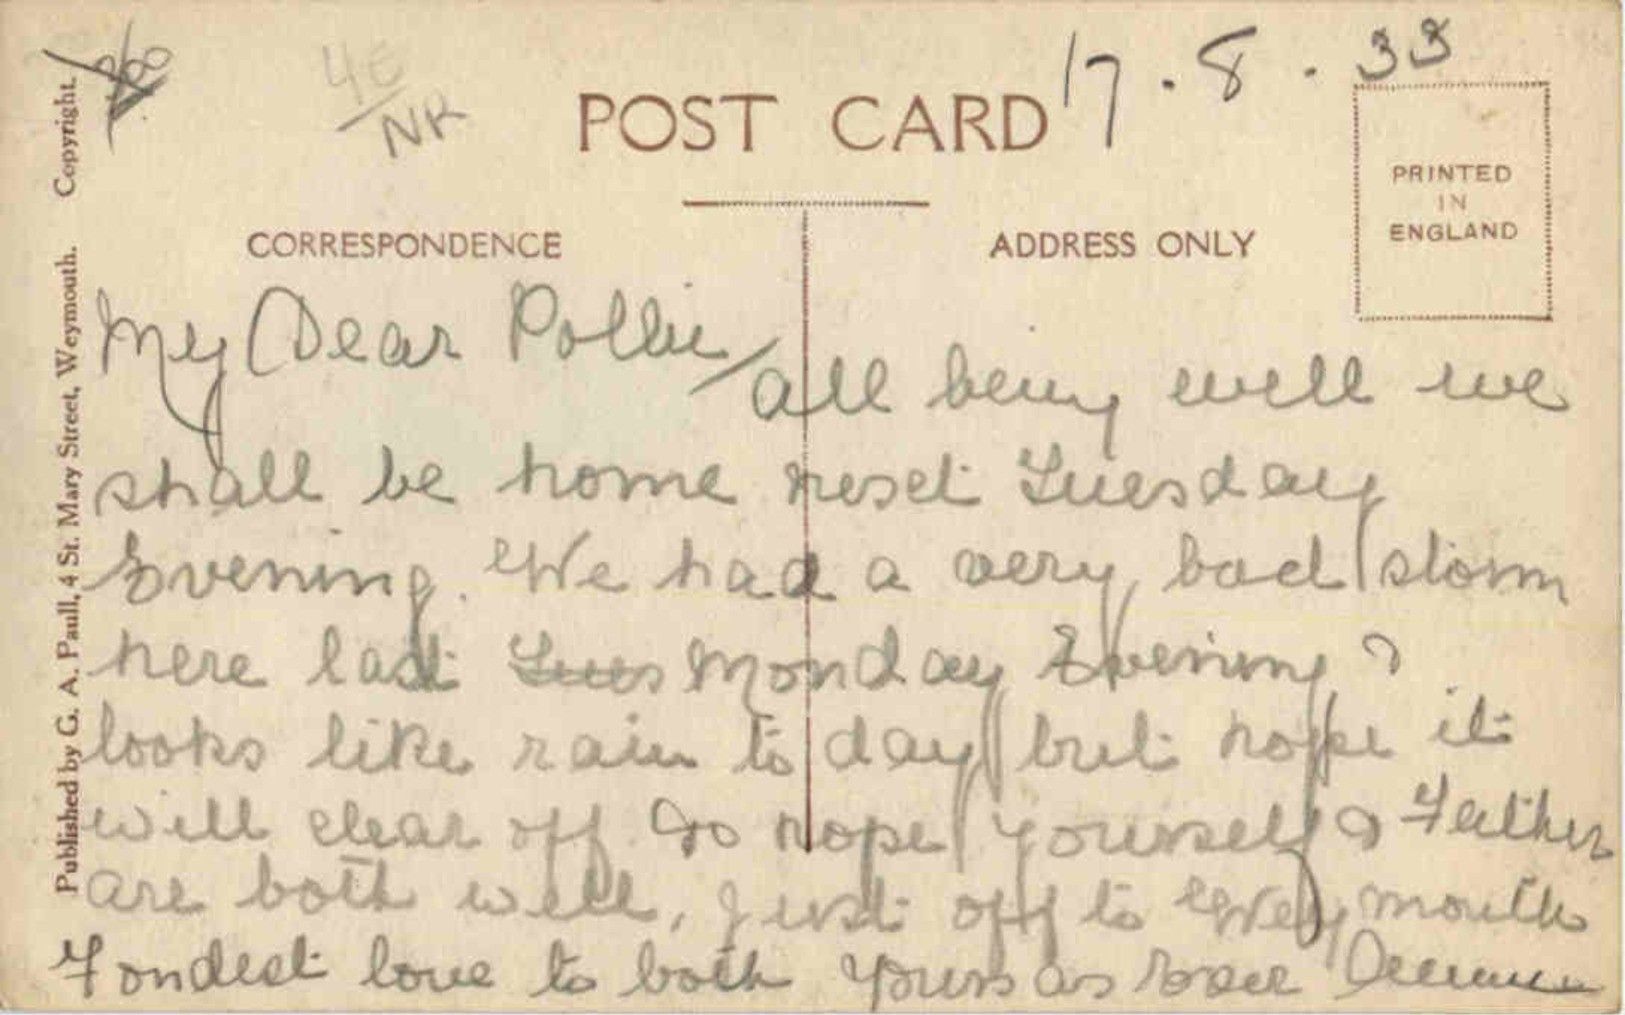 17.8.33
4E
NR
POST CARD
PRINTED
IN
ENGLAND
CORRESPONDENCE
ADDRESS ONLY
Published by G. A. Paull, 4 St. Mary Street, Weymouth. Copyright.
My Dear Pollie/
all being well we
shall be home next Tuesday
Evening. We had a very bad storm
here last Tues Monday Evening &
looks like rain to day but hope it
will clear off. So hope yourself & Father
are both well, Just off to Weymouth
Fondest love to both yours as Ever